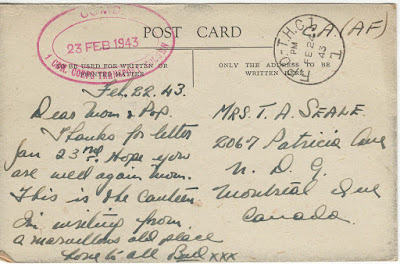 COMD.
23 FEB 1943
1 CDN. CORPS
POST CARD
C.A.(AF)
PM
FE 22
43
BE USED FOR WRITTEN OR
PRINTED MATTER
ONLY THE ADDRESS TO BE
WRITTEN HERE
Feb. 22. 43.
Dear Mom & Pop.
Thanks for letter
Jan 23rd. Hope you
are well again Mom.
This is the Canteen
I'm writing from
a marvellous old place
Love to all Bud xxx
MRS. T. A. SEALE.
2067 Patricia Ave
N. D. G.
Montreal Que
Canada.